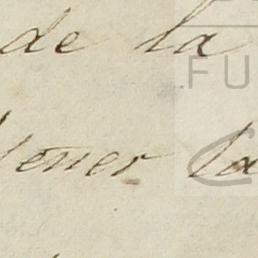 de la
tener la
FU